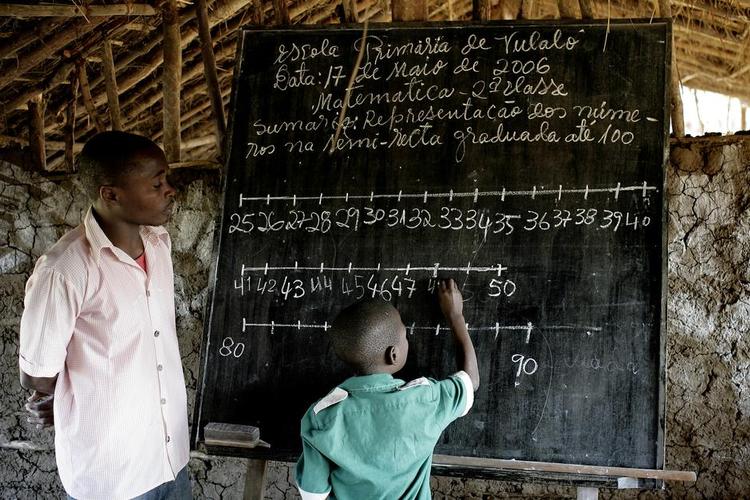 Escola Primária de Vulalo
Data: 17 de Maio de 2006
Matematica - 2ª classe
Sumário: Representação dos núme-
ros na semi-recta graduada até 100
25 26 27 28 29 30 31 32 33 34 35 36 37 38 39 40
41 42 43 44 45 46 47 4 50
80 90